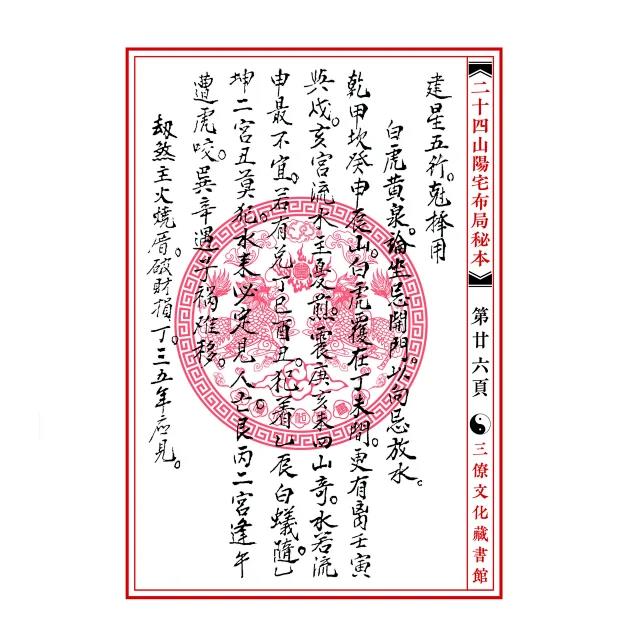 二十四山陽宅布局秘本
第廿六頁
三僚文化藏書館
建星五行。剋擇用
白虎黄泉。論坐忌開門。以向忌放水。
乾甲坎癸申辰山。白虎覆在丁未間。更有离壬寅
與戌。亥宮流水主憂煎。震庚亥未四山奇。水若流
申最不宜。若有兑丁巳酉丑。犯着乚辰白蟻隨。乚
坤二宮丑莫犯。水来必定見人亡。艮丙二宮逢午
遭虎咬。巽辛遇
祸难移。
劫煞主火燒厝。破財損丁。三五年應見。